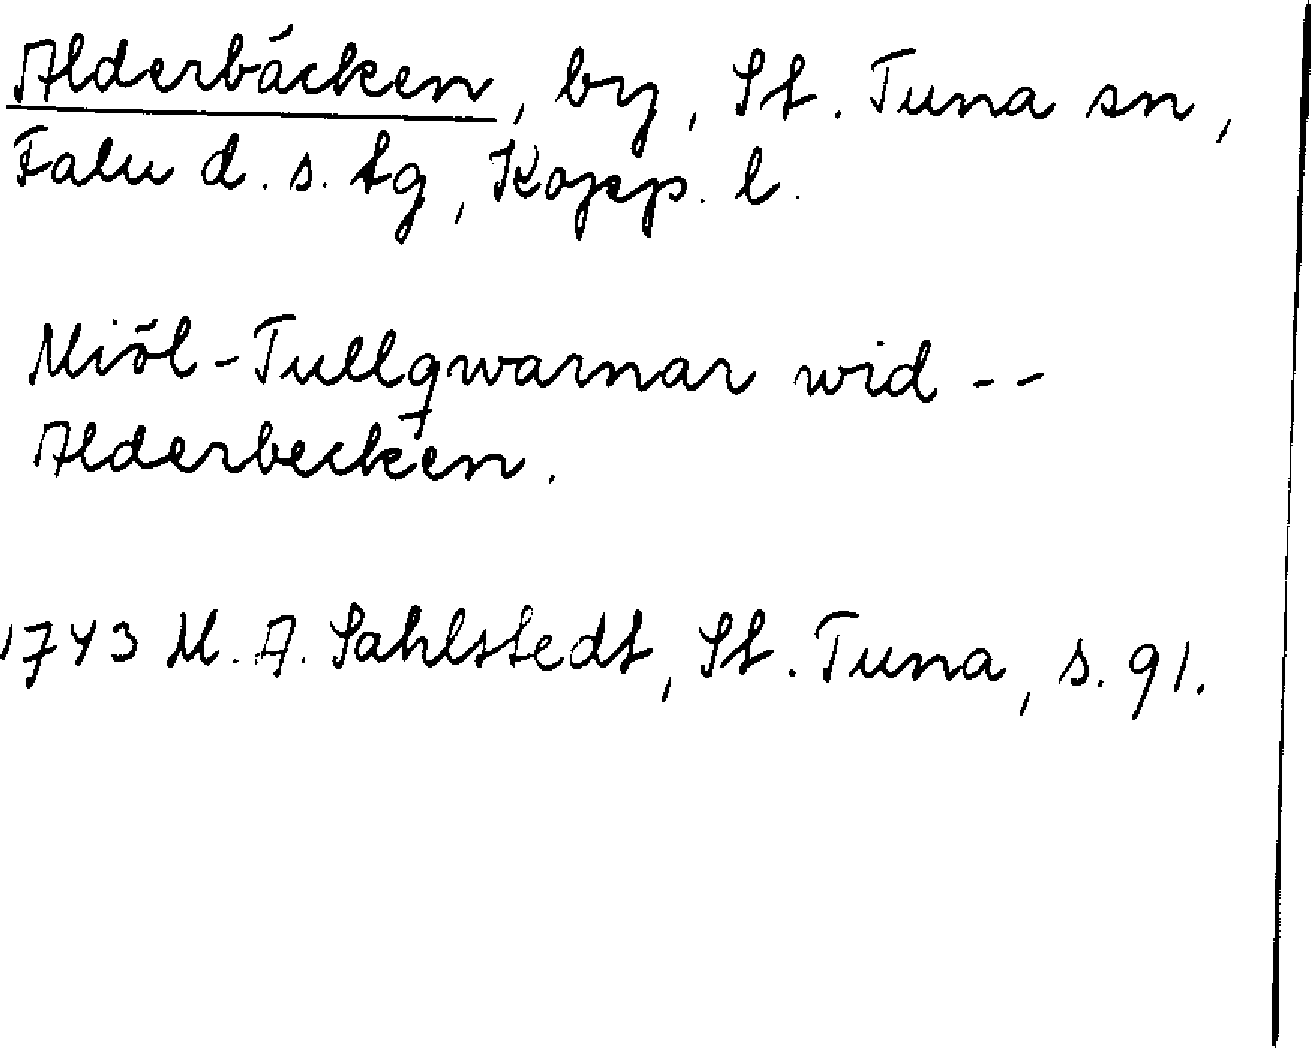 Alderbäcken, by, St. Tuna sn,
Falu d. s. tg, Kopp. l.
Miöl-Tullqwarnar wid --
Alderbecken.
1743 M. A. Sahlstedt, St. Tuna, s. 91.